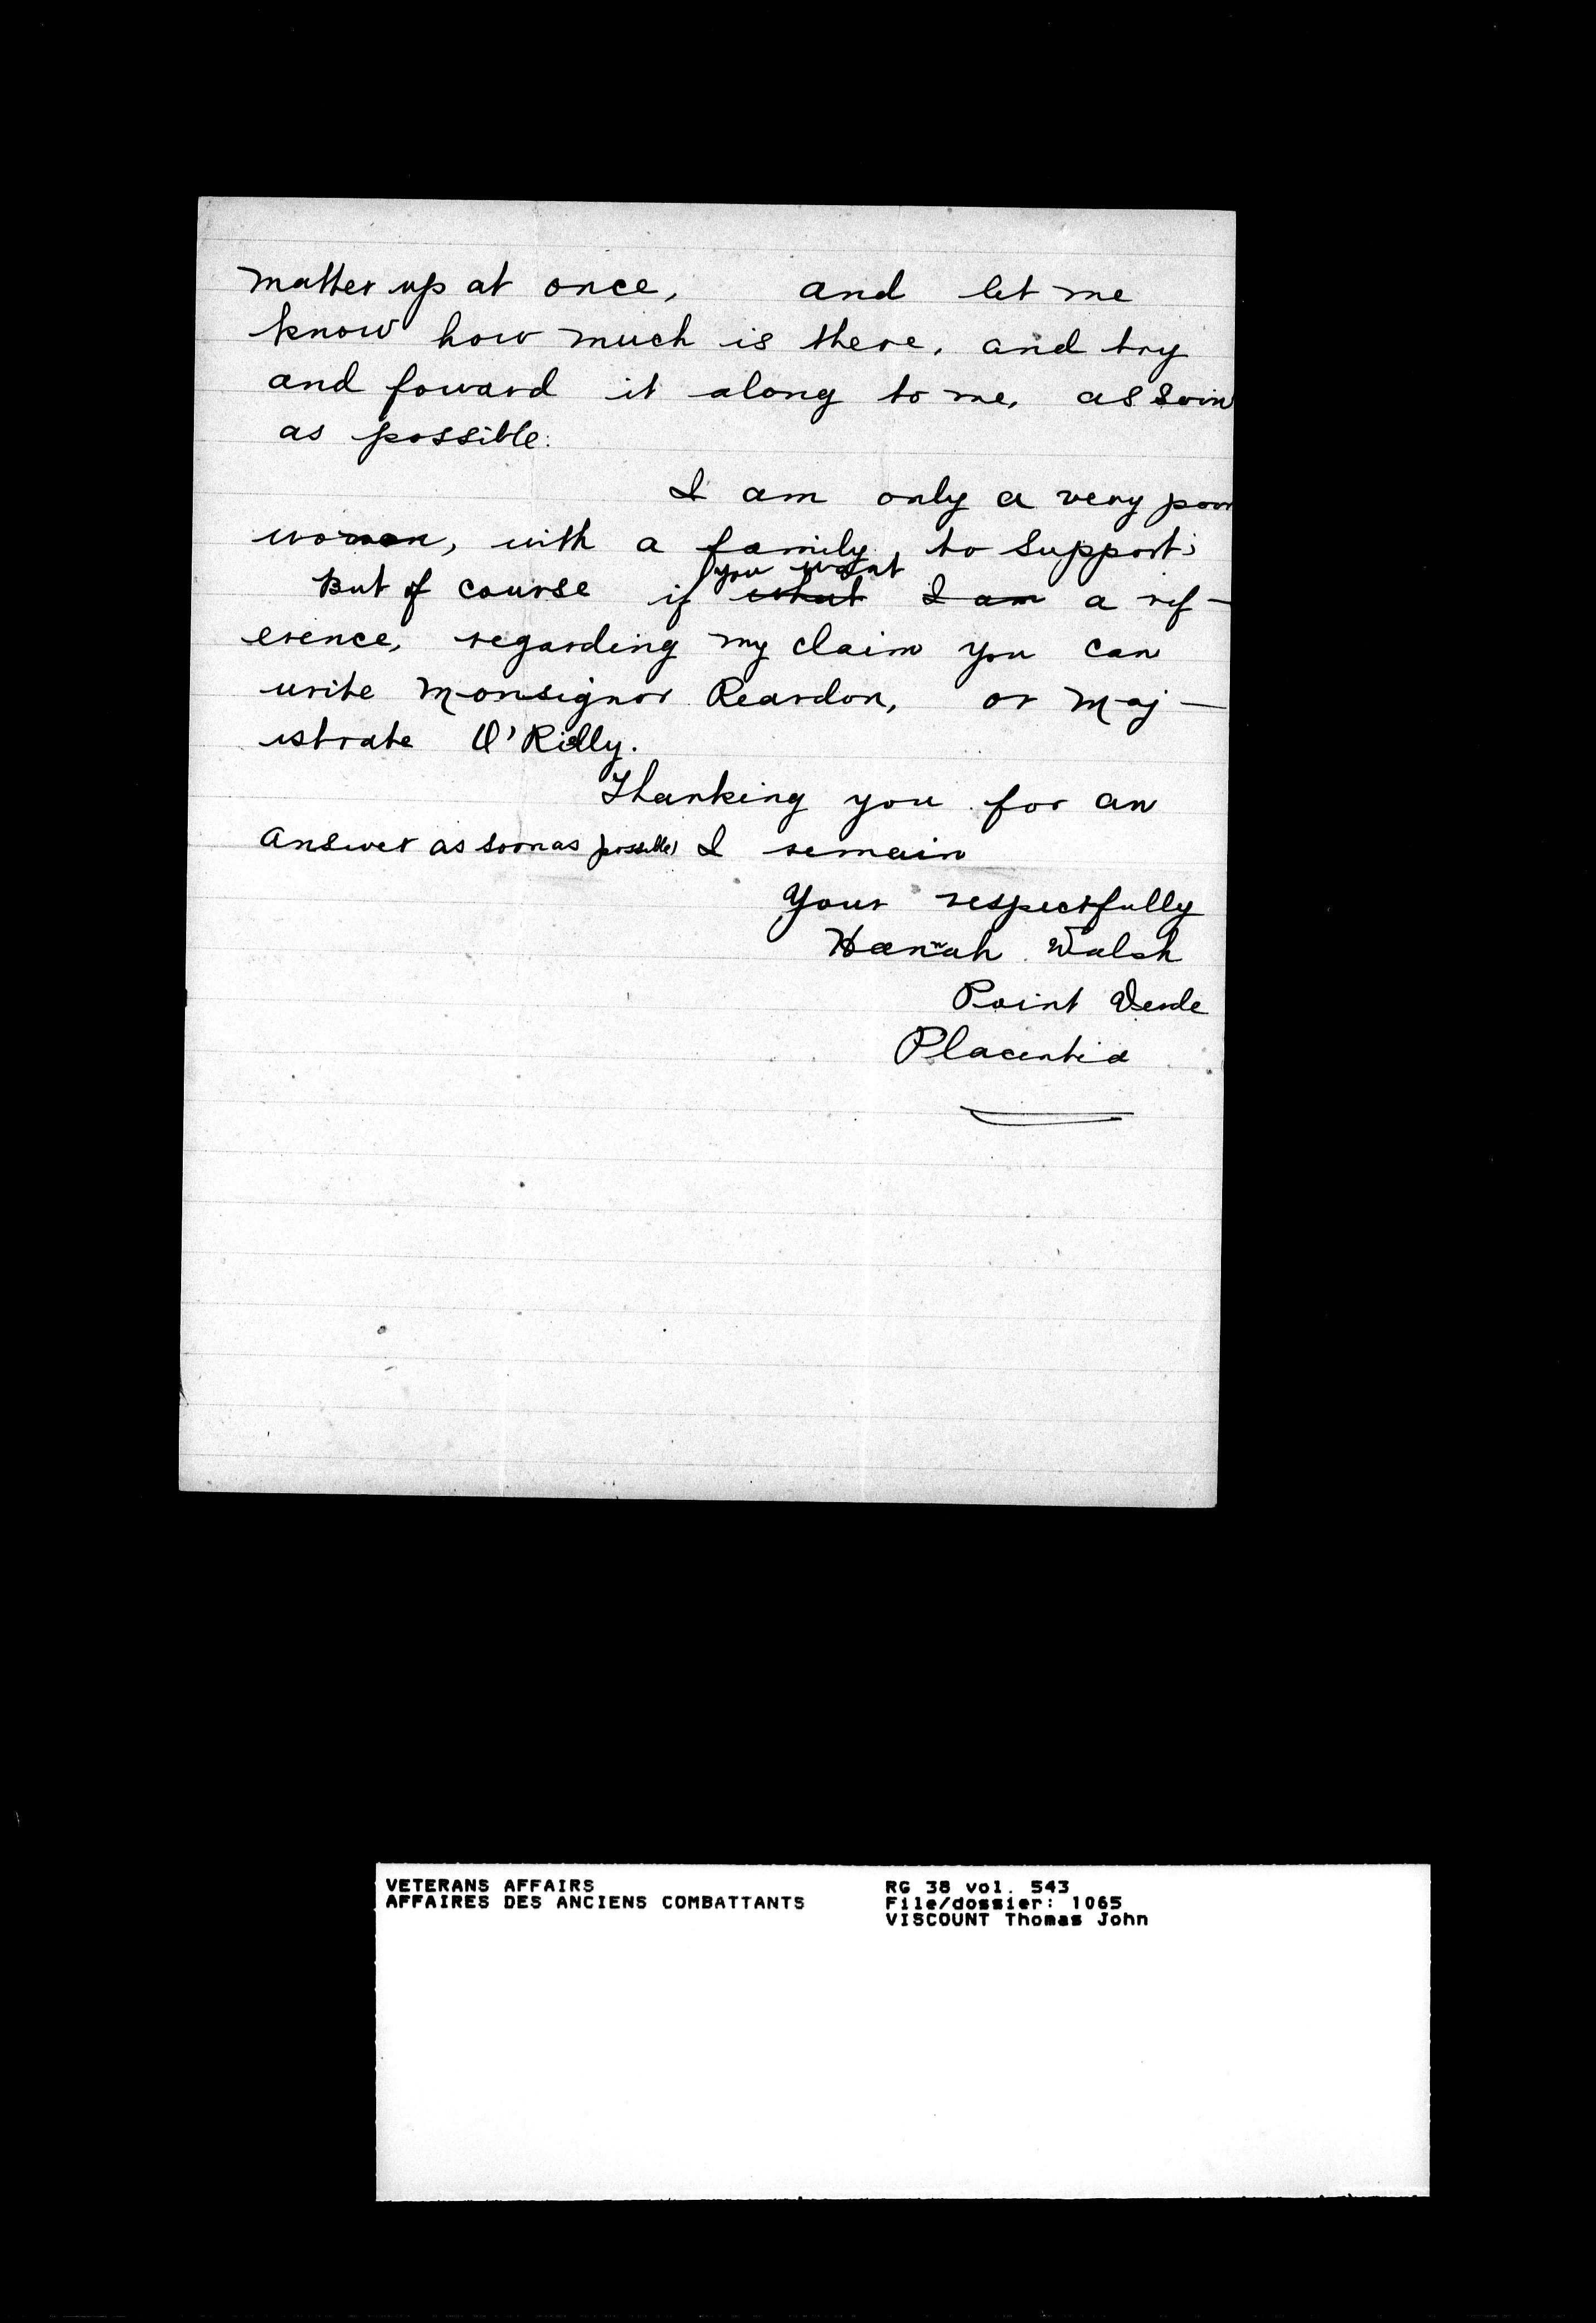 matter up at once, and let me
know how much is there, and try
and foward it along to me, as soon
as possible.
I am only a very poor
woman, with a family, to support;
you want
But of course if what I am a ref-
erence, regarding my claim you can
write Monsignor Reardon, or Maj-
istrate O'Rielly.
Thanking you for an
answer as soon as possible, I remain
Your respectfully
Hannah Walsh
Point Verde
Placentia
VETERANS AFFAIRS
AFFAIRES DES ANCIENS COMBATTANTS
RG 38 vol. 543
File/dossier: 1065
VISCOUNT Thomas John